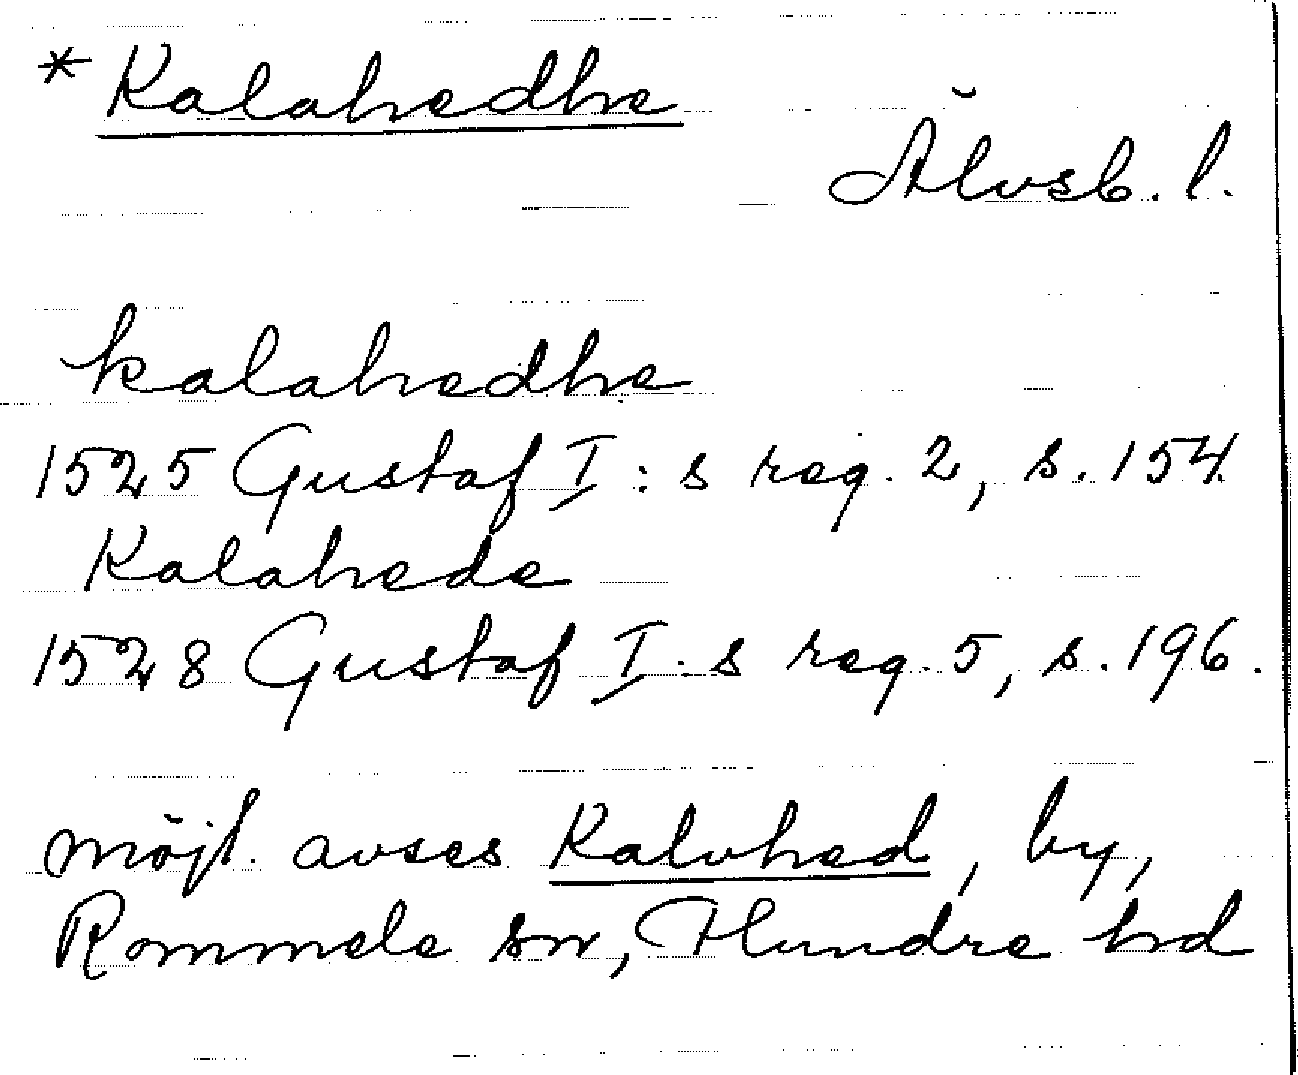 * Kalahedhe
Älvsb. l.
kalahedhe
1525 Gustaf I:s reg. 2, s. 154.
Kalahede
1528 Gustaf I:s reg. 5, s. 196.
möjl. avses Kalvhed, by,
Rommele sn, Flundre hd